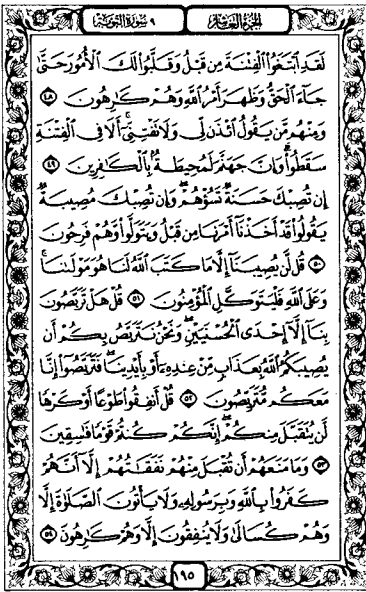 الجزء العاشر ٩ سورة التوبة
لَقَدِ ابْتَغَوُا الْفِتْنَةَ مِن قَبْلُ وَقَلَّبُوا لَكَ الْأُمُورَ حَتَّىٰ
جَاءَ الْحَقُّ وَظَهَرَ أَمْرُ اللَّهِ وَهُمْ كَارِهُونَ ٤٨
وَمِنْهُم مَّن يَقُولُ ائْذَن لِّي وَلَا تَفْتِنِّي أَلَا فِي الْفِتْنَةِ
سَقَطُوا وَإِنَّ جَهَنَّمَ لَمُحِيطَةٌ بِالْكَافِرِينَ ٤٩
إِن تُصِبْكَ حَسَنَةٌ تَسُؤْهُمْ وَإِن تُصِبْكَ مُصِيبَةٌ
يَقُولُوا قَدْ أَخَذْنَا أَمْرَنَا مِن قَبْلُ وَيَتَوَلَّوا وَّهُمْ فَرِحُونَ
٥٠ قُل لَّن يُصِيبَنَا إِلَّا مَا كَتَبَ اللَّهُ لَنَا هُوَ مَوْلَىٰنَا
وَعَلَى اللَّهِ فَلْيَتَوَكَّلِ الْمُؤْمِنُونَ ٥١ قُلْ هَلْ تَرَبَّصُونَ
بِنَا إِلَّا إِحْدَى الْحُسْنَيَيْنِ وَنَحْنُ نَتَرَبَّصُ بِكُمْ أَن
يُصِيبَكُمُ اللَّهُ بِعَذَابٍ مِّنْ عِندِهِ أَوْ بِأَيْدِينَا فَتَرَبَّصُوا إِنَّا
مَعَكُم مُّتَرَبِّصُونَ ٥٢ قُلْ أَنفِقُوا طَوْعًا أَوْ كَرْهًا
لَّن يُتَقَبَّلَ مِنكُمْ إِنَّكُمْ كُنتُمْ قَوْمًا فَاسِقِينَ
٥٣ وَمَا مَنَعَهُمْ أَن تُقْبَلَ مِنْهُمْ نَفَقَاتُهُمْ إِلَّا أَنَّهُمْ
كَفَرُوا بِاللَّهِ وَبِرَسُولِهِ وَلَا يَأْتُونَ الصَّلَوٰةَ إِلَّا
وَهُمْ كُسَالَىٰ وَلَا يُنفِقُونَ إِلَّا وَهُمْ كَارِهُونَ ٥٤
١٩٥